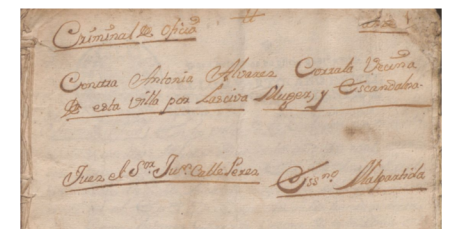 Criminal de oficio
Contra Antonia Alvarez Corrala Vecina
de esta Villa por Lasciva Muger, y Escandalosa
Juez el Sor. Calle Perea Essno. Malpartida